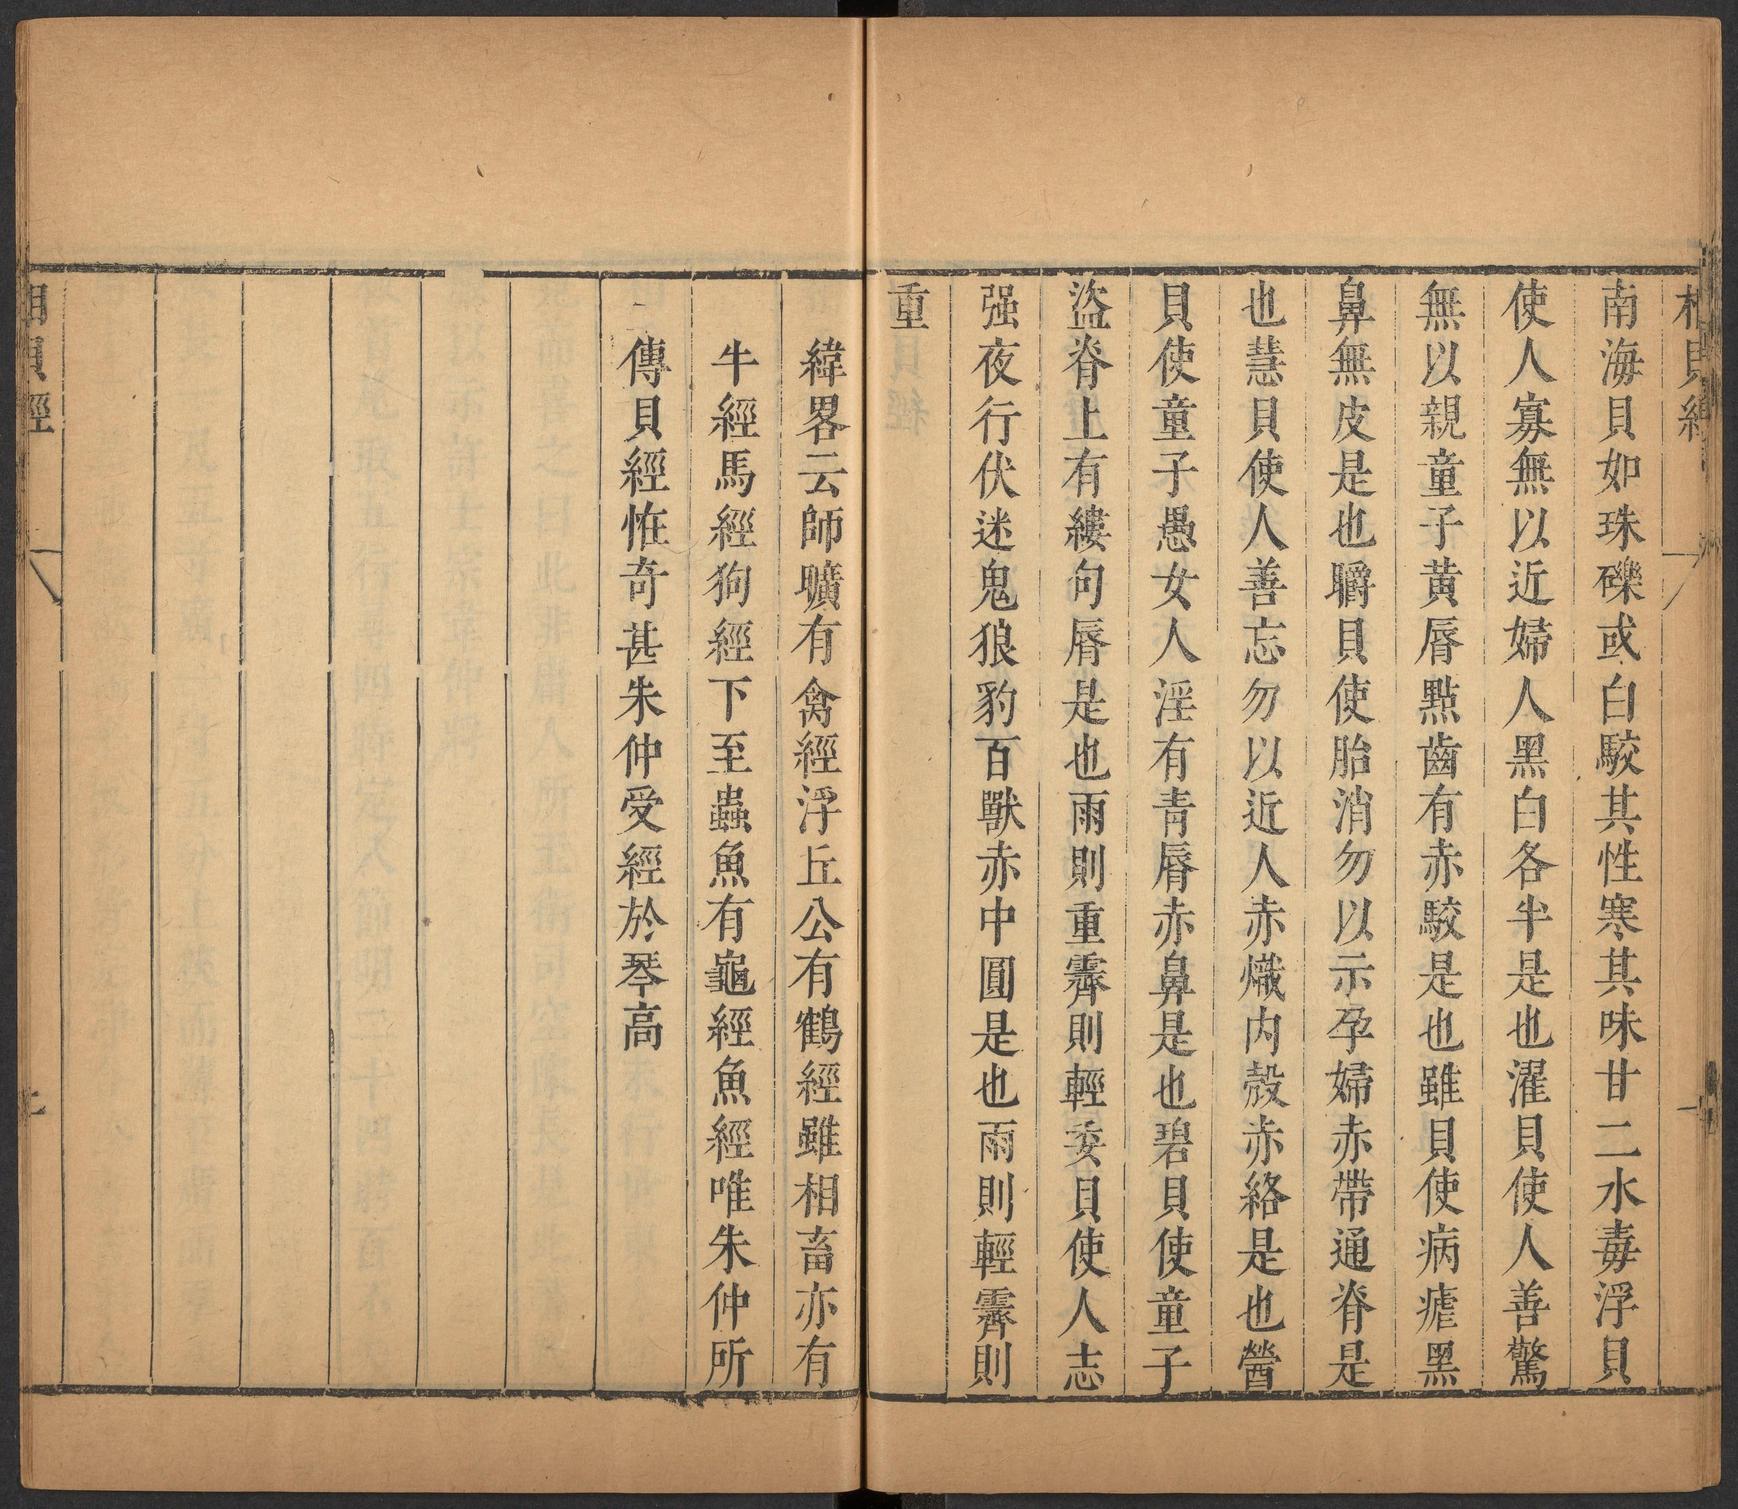 相貝經
南海貝如珠礫或白駮其性寒其味甘二水毒浮貝
使人寡無以近婦人黑白各半是也濯貝使人善驚
無以親童子黄脣點齒有赤駮是也雖貝使病瘧黑
鼻無皮是也㬭貝使胎消勿以示孕婦赤帶通脊是
也慧貝使人善忘勿以近人赤熾内殼赤絡是也醟
貝使童子愚女人淫有青脣赤鼻是也碧貝使童子
盜脊上有縷句脣是也雨則重霽則輕委貝使人志
强夜行伏迷鬼狼豹百獸赤中圓是也雨則輕霽則
重
緯畧云師曠有禽經浮丘公有鶴經雖相畜亦有
牛經馬經狗經下至蟲魚有龜經魚經唯朱仲所
傳貝經恠奇甚朱仲受經於琴高
相貝經